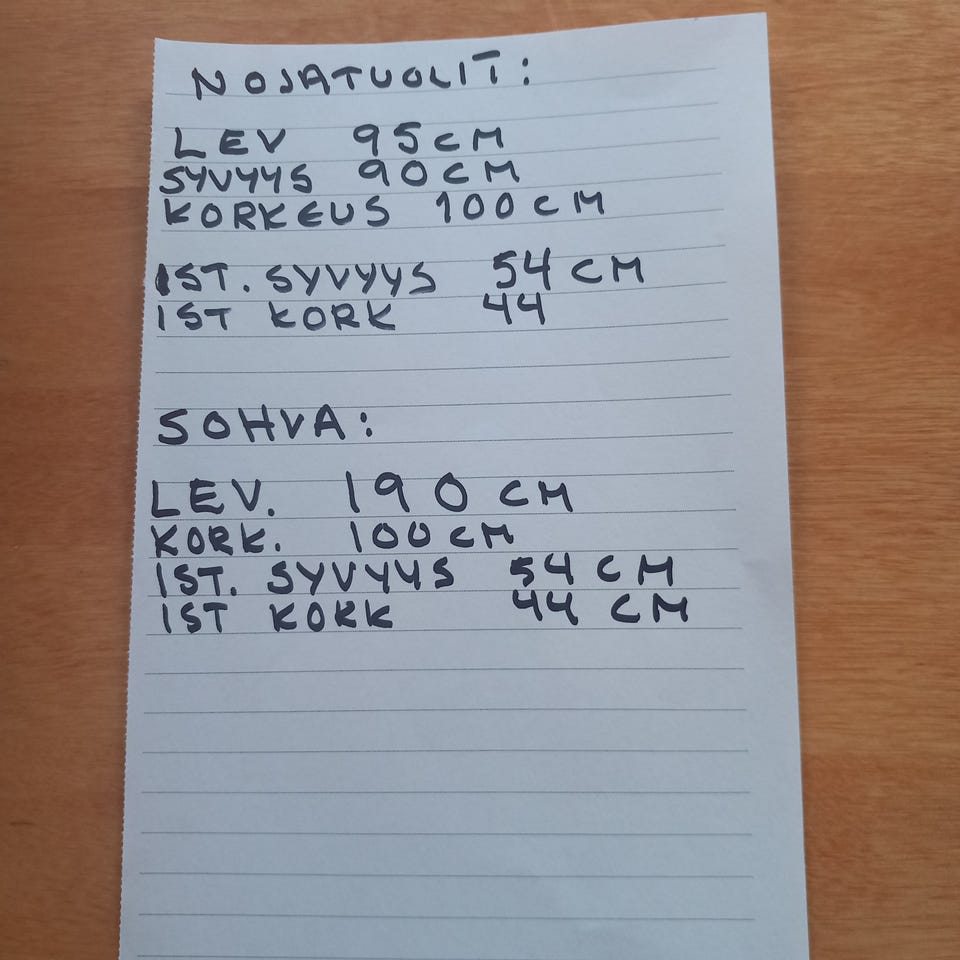 NOJATUOLIT:
LEV 95CM
SYVYYS 90CM
KORKEUS 100CM
IST. SYVYYS 54 CM
IST KORK 44
SOHVA:
LEV. 190 CM
KORK. 100CM
IST. SYVYYS 54 CM
IST KORK 44 CM